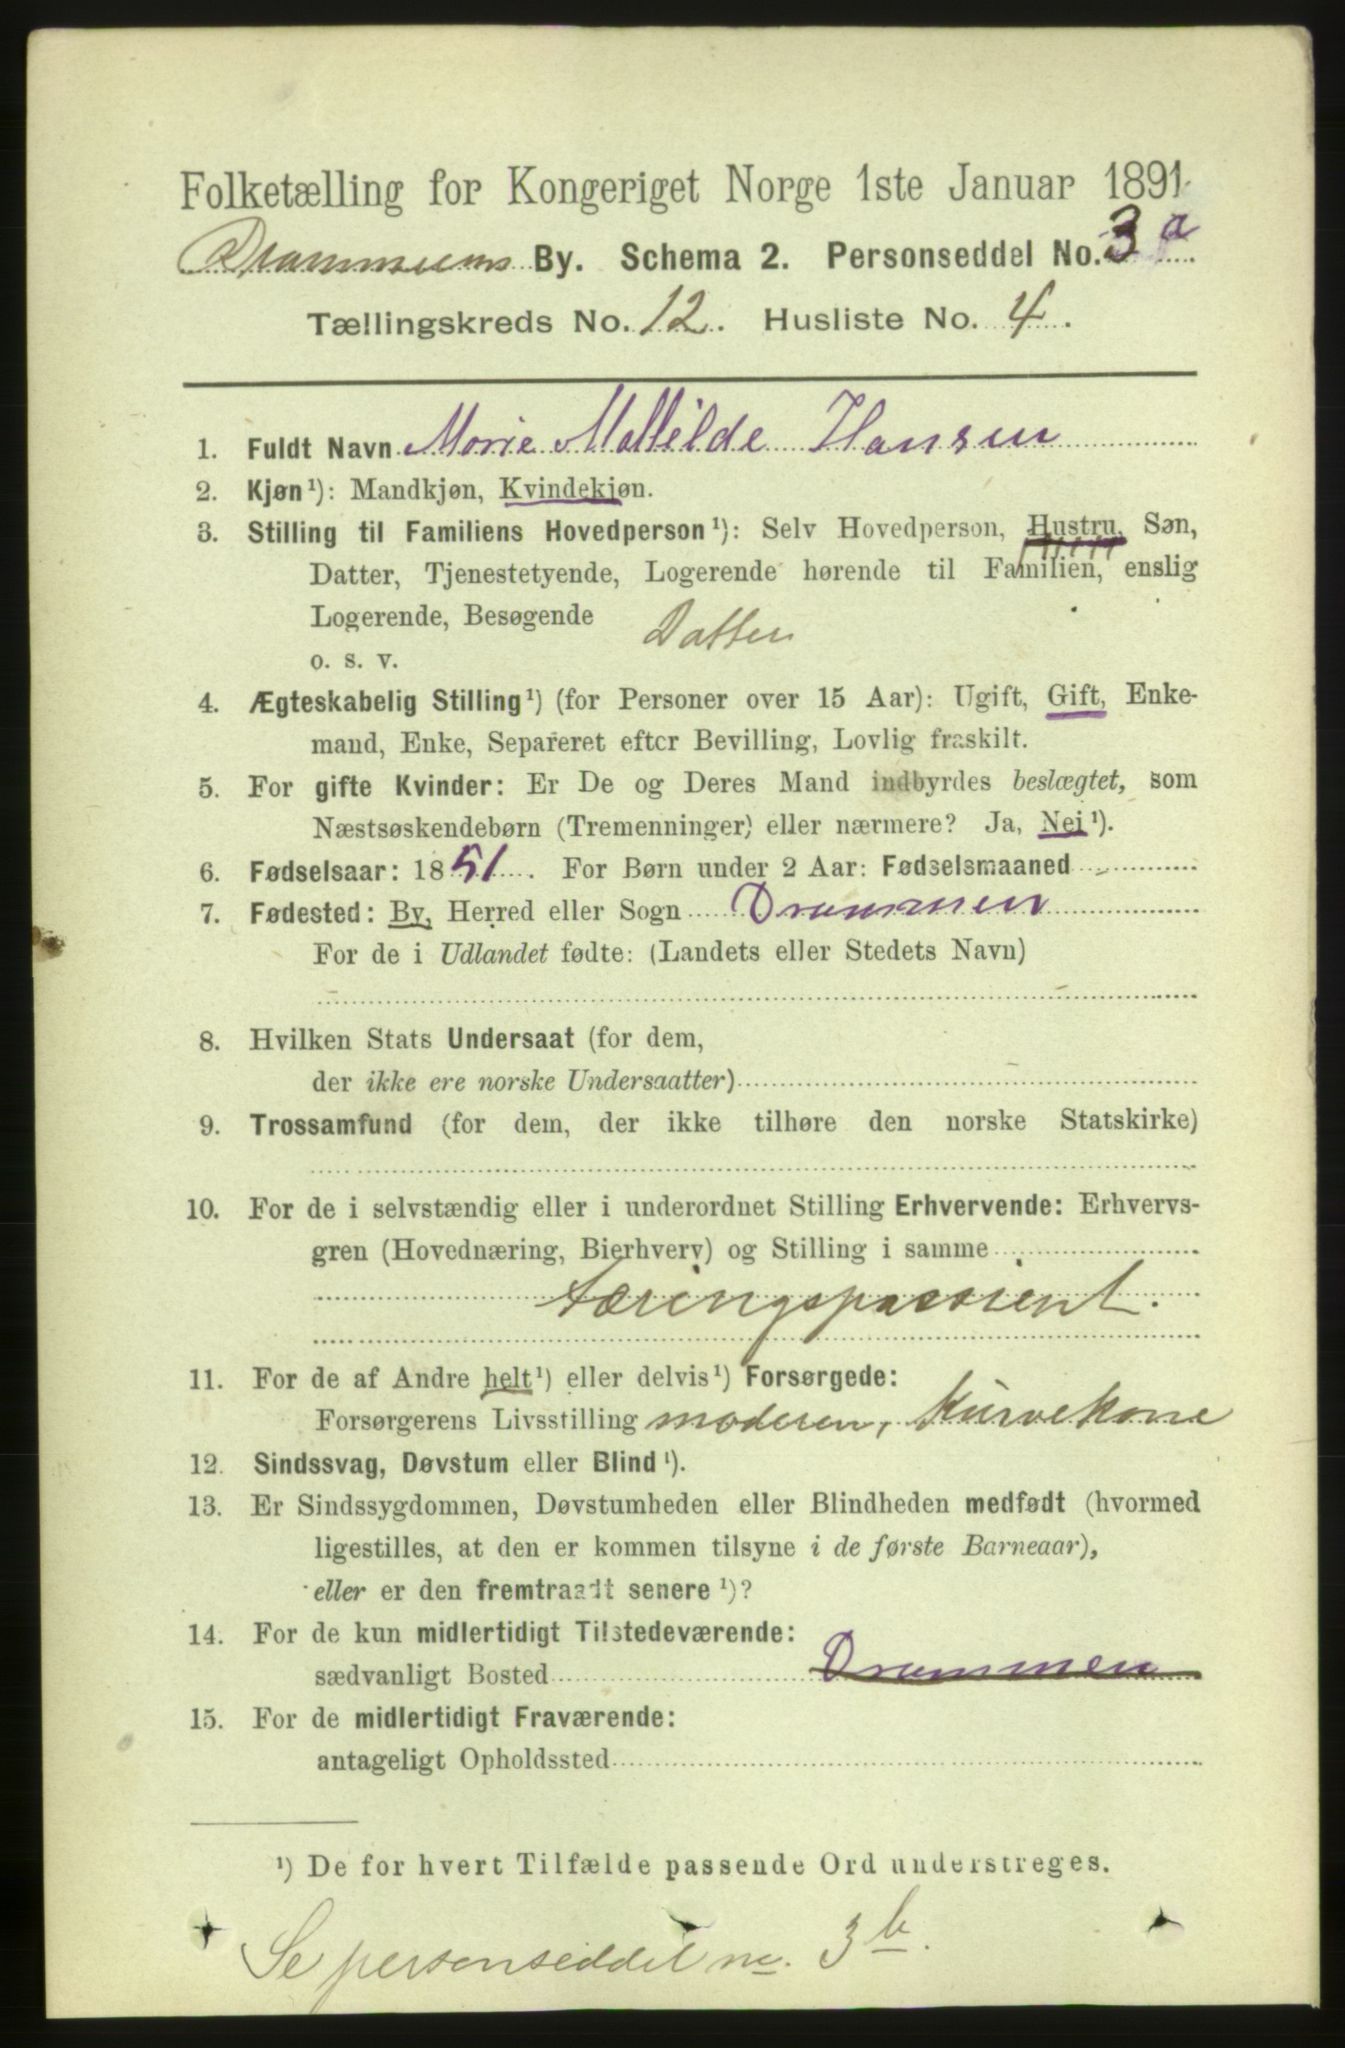 Folketælling for Kongeriget Norge 1ste Januar 1891
Drammens By. Schema 2. Personseddel No. 3 a
Tællingskreds No. 12. Husliste No. 4.
1. Fuldt Navn Marie Mathilde Hansen
2. Kjøn¹): Mandkjøn, Kvindekjøn.
3. Stilling til Familiens Hovedperson¹): Selv Hovedperson, Hustru, Søn,
Datter, Tjenestetyende, Logerende hørende til Familien, enslig
Logerende, Besøgende Datter
o. s. v.
4. Ægteskabelig Stilling¹) (for Personer over 15 Aar): Ugift, Gift, Enke-
mand, Enke, Separeret efter Bevilling, Lovlig fraskilt.
5. For gifte Kvinder: Er De og Deres Mand indbyrdes beslægtet, som
Næstsøskendebørn (Tremenninger) eller nærmere? Ja, Nei¹).
6. Fødselsaar: 1851. For Børn under 2 Aar: Fødselsmaaned
7. Fødested: By, Herred eller Sogn Drammen
For de i Udlandet fødte: (Landets eller Stedets Navn)
8. Hvilken Stats Undersaat (for dem,
der ikke ere norske Undersaatter)
9. Trossamfund (for dem, der ikke tilhøre den norske Statskirke)
10. For de i selvstændig eller i underordnet Stilling Erhvervende: Erhvervs-
gren (Hovednæring, Bierhverv) og Stilling i samme
tæringspassient.
11. For de af Andre helt¹) eller delvis¹) Forsørgede:
Forsørgerens Livsstilling moderen, Kurvekone
12. Sindssvag, Døvstum eller Blind¹).
13. Er Sindssygdommen, Døvstumheden eller Blindheden medfødt (hvormed
ligestilles, at den er kommen tilsyne i de første Barneaar),
eller er den fremtraadt senere¹)?
14. For de kun midlertidigt Tilstedeværende:
sædvanligt Bosted Drammen
15. For de midlertidigt Fraværende:
antageligt Opholdssted
¹) De for hvert Tilfælde passende Ord understreges.
Se personseddel no. 3 b.